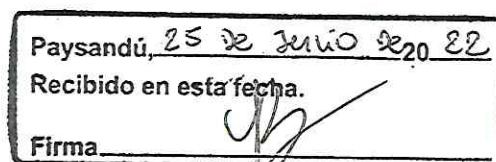 Paysandú, 25 de de 20 22
Recibido en esta fecha.
Firma